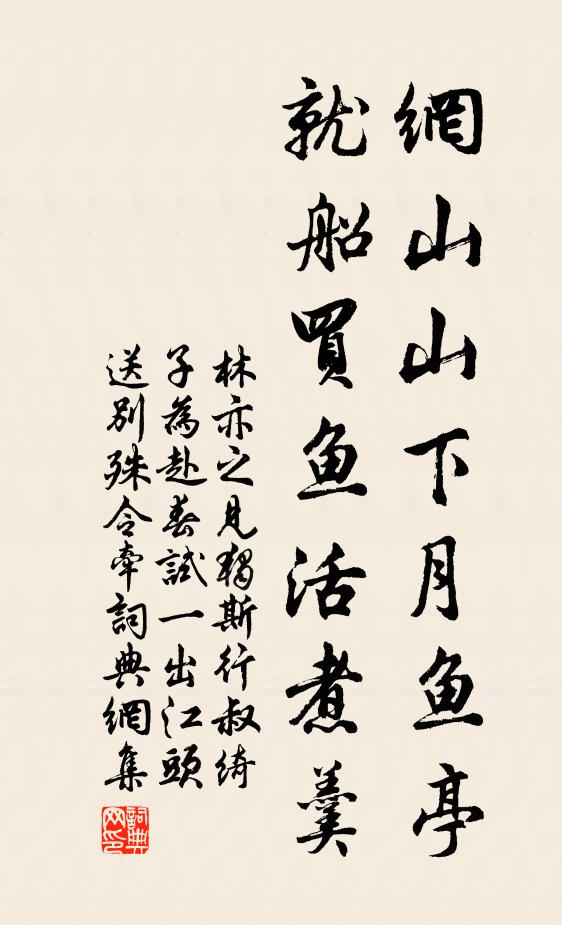 網山山下月鱼亭
就船買鱼活煮羹
林亦之見獨斯行叔綺
子為赴春試一出江頭
送別殊令牽詞典網集
詞典网印